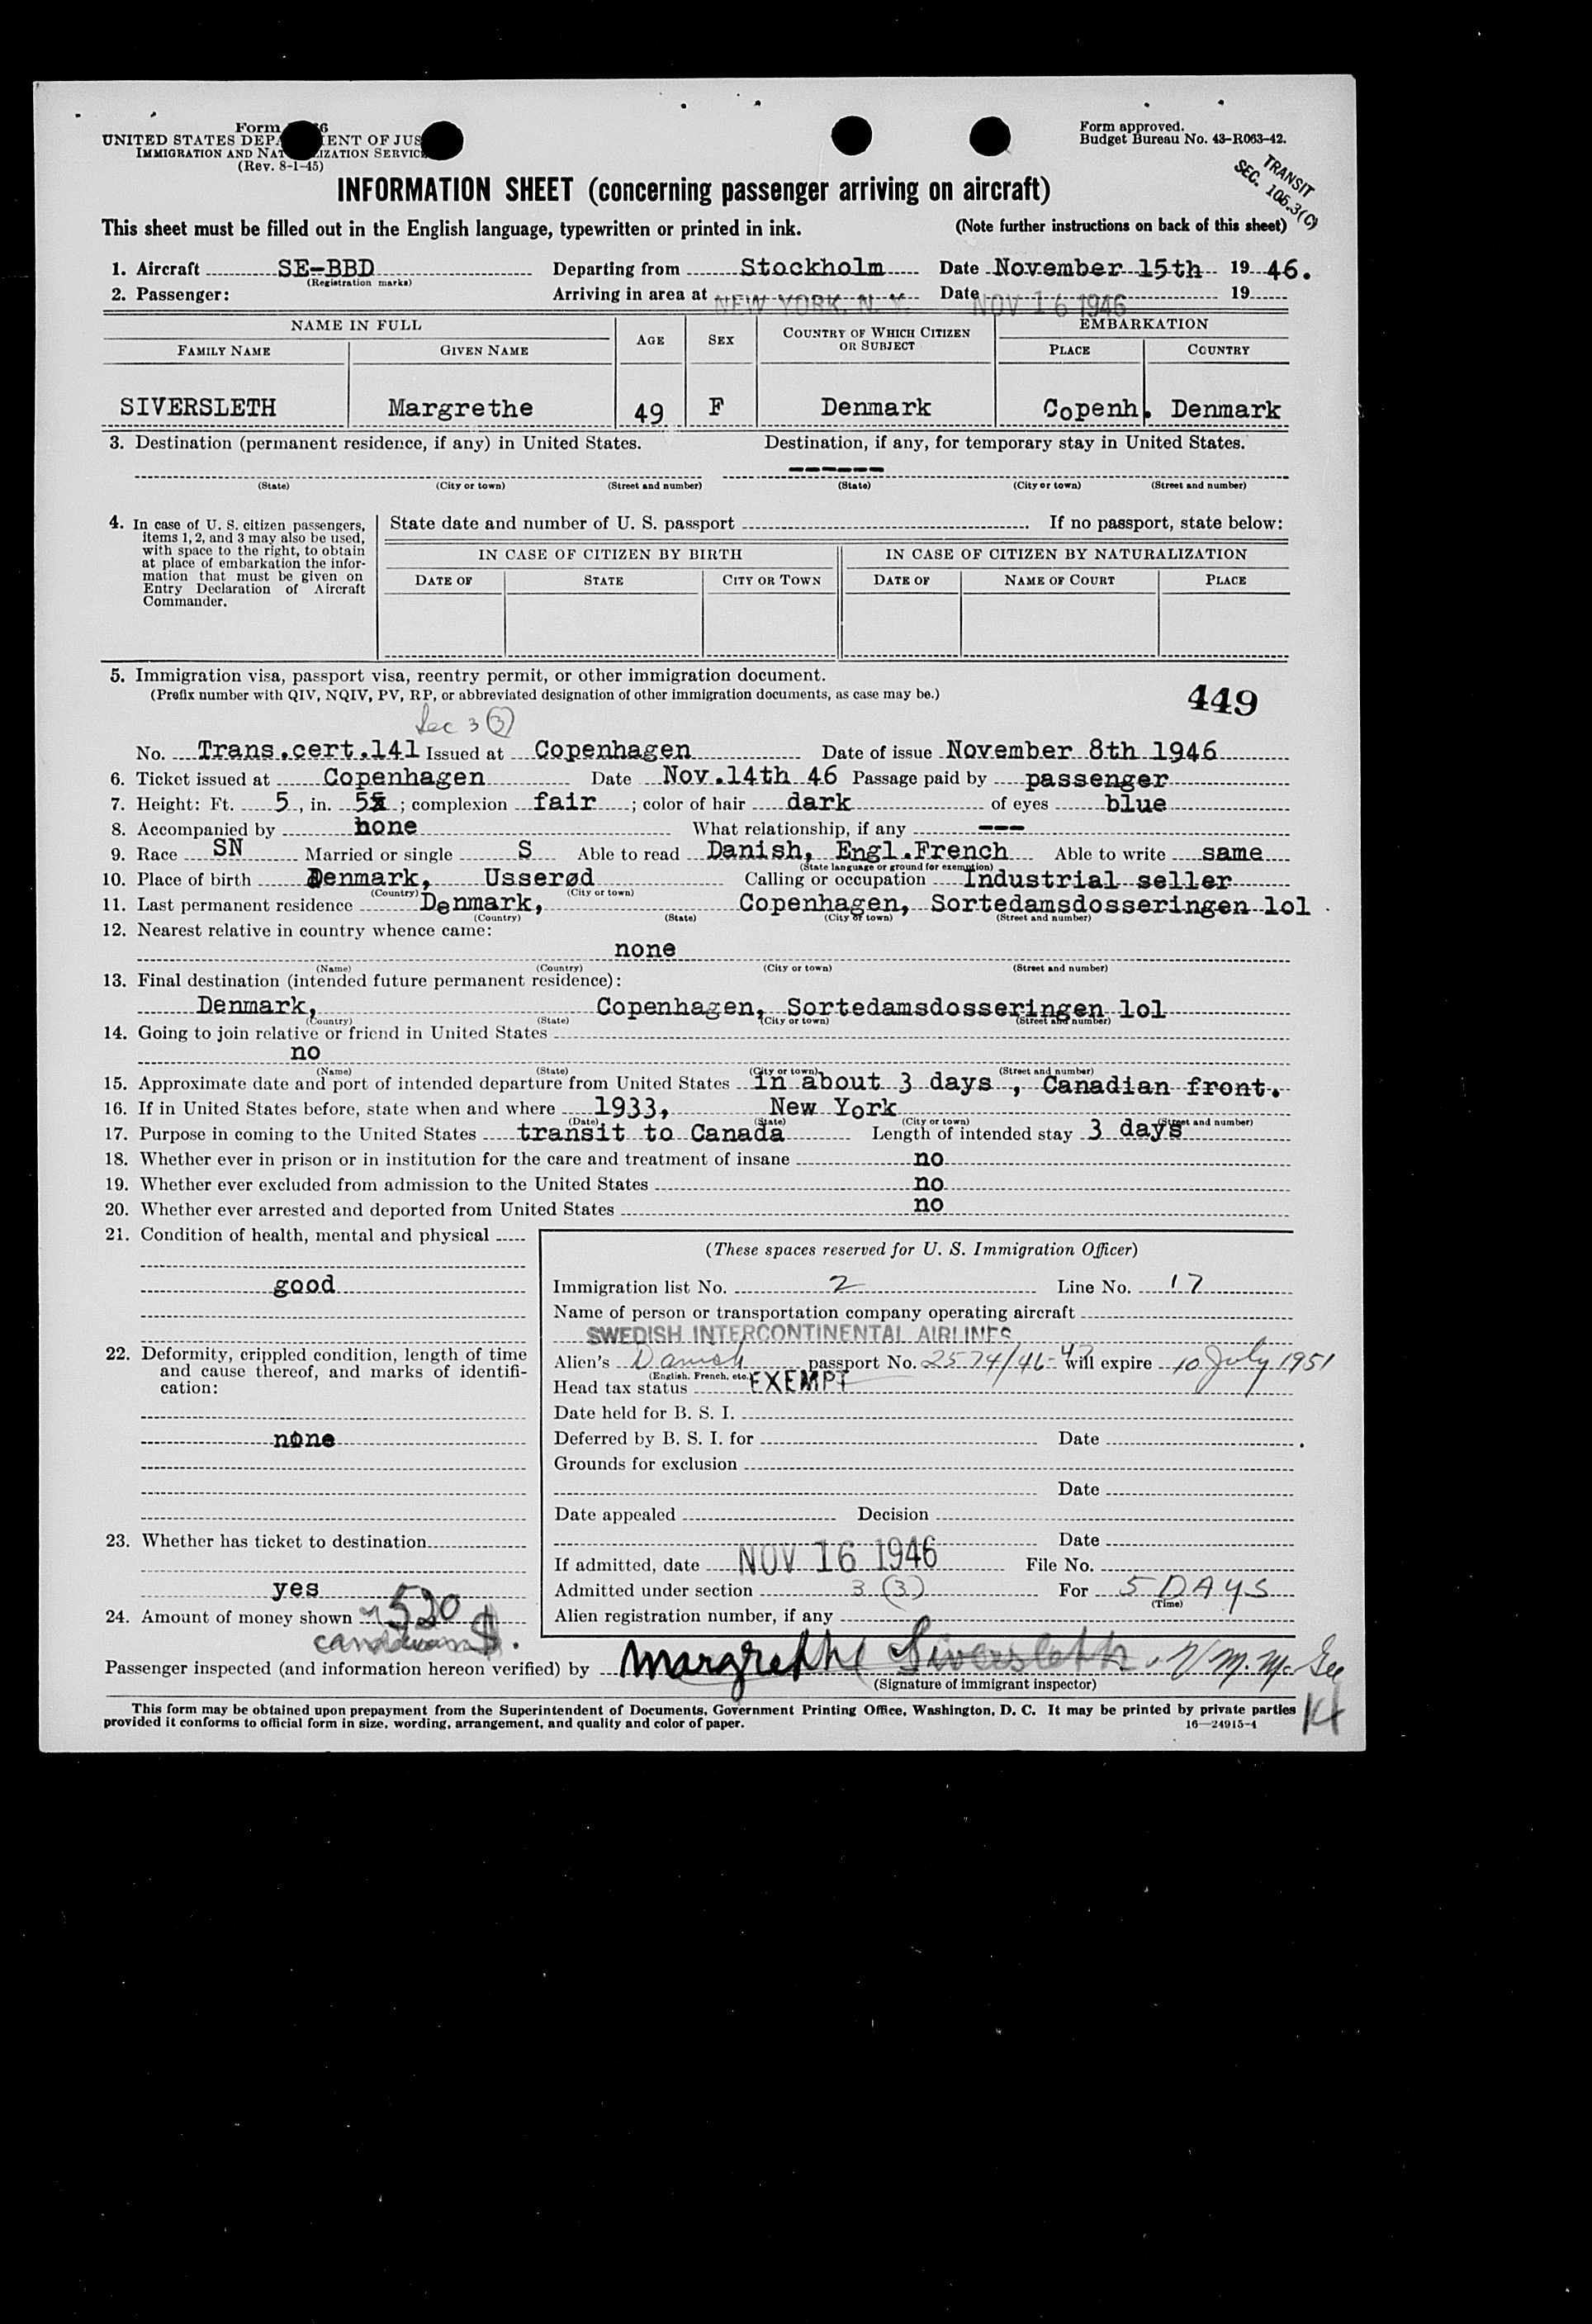 Form 6 Form approved.
UNITED STATES DEPA ENT OF JUS Budget Bureau No. 43-R063-42.
IMMIGRATION AND NAT IZATION SERVICE
(Rev. 8-1-45)
TRANSIT
SEC. 106.3(C)
INFORMATION SHEET (concerning passenger arriving on aircraft)
This sheet must be filled out in the English language, typewritten or printed in ink. (Note further instructions on back of this sheet)
1. Aircraft SE-BBD Departing from Stockholm Date November 15th 19 46.
(Registration marks)
2. Passenger: Arriving in area at NEW YORK, N. Y. Date NOV 16 1946 19
NAME IN FULL AGE SEX COUNTRY OF WHICH CITIZEN OR SUBJECT EMBARKATION
FAMILY NAME GIVEN NAME PLACE COUNTRY
SIVERSLETH Margrethe 49 F Denmark Copenh. Denmark
3. Destination (permanent residence, if any) in United States. Destination, if any, for temporary stay in United States.
------
(State) (City or town) (Street and number) (State) (City or town) (Street and number)
4. In case of U. S. citizen passengers, items 1, 2, and 3 may also be used, with space to the right, to obtain at place of embarkation the information that must be given on Entry Declaration of Aircraft Commander.
State date and number of U. S. passport If no passport, state below:
IN CASE OF CITIZEN BY BIRTH IN CASE OF CITIZEN BY NATURALIZATION
DATE OF STATE CITY OR TOWN DATE OF NAME OF COURT PLACE
5. Immigration visa, passport visa, reentry permit, or other immigration document.
(Prefix number with QIV, NQIV, PV, RP, or abbreviated designation of other immigration documents, as case may be.) 449
Sec 3 (3)
No. Trans.cert.141 Issued at Copenhagen Date of issue November 8th 1946
6. Ticket issued at Copenhagen Date Nov.14th 46 Passage paid by passenger
7. Height: Ft. 5, in. 5; complexion fair; color of hair dark of eyes blue
8. Accompanied by none What relationship, if any ---
9. Race SN Married or single S Able to read Danish, Engl.French Able to write same
(State language or ground for exemption)
10. Place of birth Denmark, Usserød Calling or occupation Industrial seller
(Country) (City or town)
11. Last permanent residence Denmark, Copenhagen, Sortedamsdosseringen lol
(Country) (State) (City or town) (Street and number)
12. Nearest relative in country whence came:
none
(Name) (Country) (City or town) (Street and number)
13. Final destination (intended future permanent residence):
Denmark, Copenhagen, Sortedamsdosseringen lol
(Country) (State) (City or town) (Street and number)
14. Going to join relative or friend in United States
no
(Name) (State) (City or town) (Street and number)
15. Approximate date and port of intended departure from United States in about 3 days , Canadian front.
16. If in United States before, state when and where 1933, New York
(Date) (State) (City or town) (Street and number)
17. Purpose in coming to the United States transit to Canada Length of intended stay 3 days
18. Whether ever in prison or in institution for the care and treatment of insane no
19. Whether ever excluded from admission to the United States no
20. Whether ever arrested and deported from United States no
21. Condition of health, mental and physical
good
22. Deformity, crippled condition, length of time and cause thereof, and marks of identification:
none
23. Whether has ticket to destination
yes
24. Amount of money shown 520
canadian $.
(These spaces reserved for U. S. Immigration Officer)
Immigration list No. 2 Line No. 17
Name of person or transportation company operating aircraft
SWEDISH INTERCONTINENTAL AIRLINES
Alien's Danish passport No. 2574/46-47 will expire 10 July 1951
(English, French, etc.)
Head tax status EXEMPT
Date held for B. S. I.
Deferred by B. S. I. for Date
Grounds for exclusion
Date
Date appealed Decision
Date
If admitted, date NOV 16 1946 File No.
Admitted under section 3 (3) For 5 DAYS
(Time)
Alien registration number, if any
Passenger inspected (and information hereon verified) by Margrethe Siversleth. V M. McGee
(Signature of immigrant inspector)
This form may be obtained upon prepayment from the Superintendent of Documents, Government Printing Office, Washington, D. C. It may be printed by private parties
provided it conforms to official form in size, wording, arrangement, and quality and color of paper. 16—24915-4